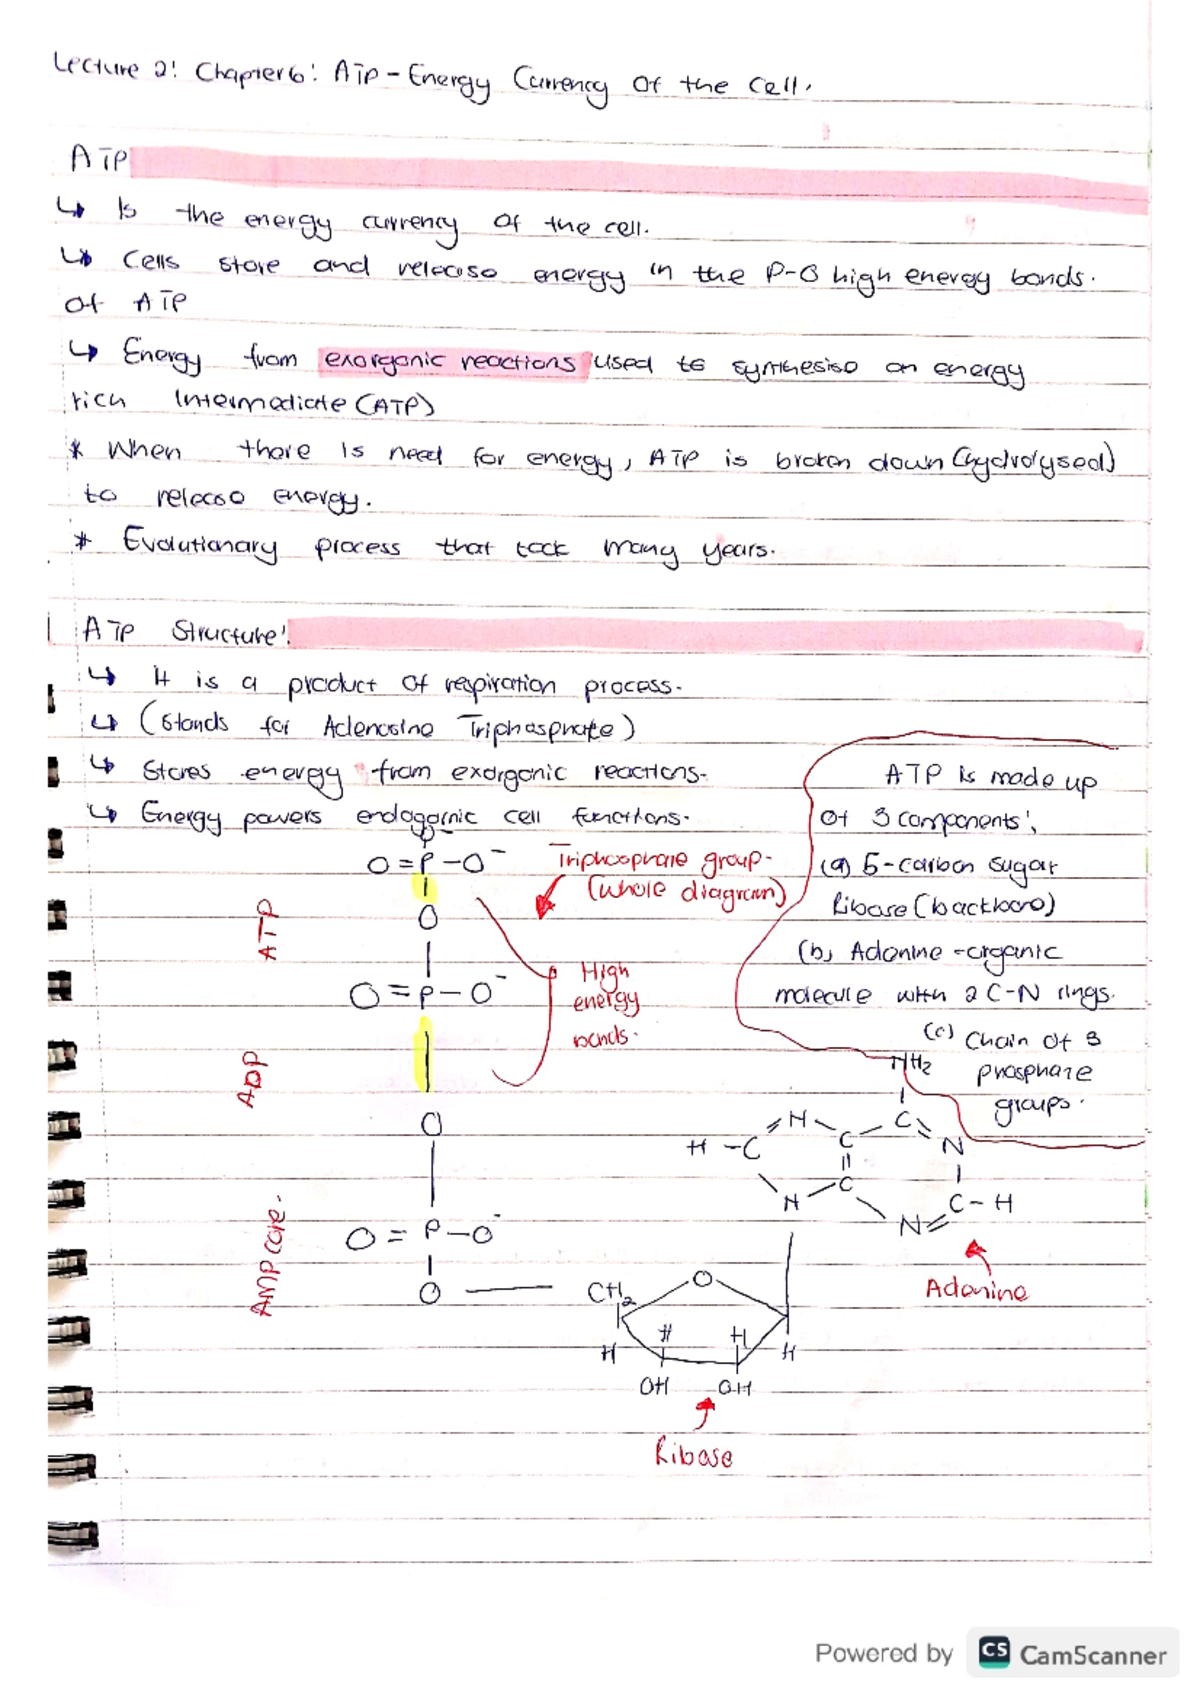 Lecture 2: Chapter 6: ATP - Energy Currency of the Cell.
ATP
↳ Is the energy currency of the cell.
↳ Cells store and release energy in the P-O high energy bonds.
of ATP
↳ Energy from exorgonic reactions used to synthesise an energy
rich Intermediate (ATP)
* When there is need for energy, ATP is broken down (hydrolysed)
to release energy.
* Evolutionary process that took many years.
ATP Structure:
↳ It is a product of respiration process.
↳ (Stands for Adenosine Triphosphate)
↳ Stores energy from exorgonic reactions.
↳ Energy powers endogornic cell functions.
ATP is made up
of 3 components:
(a) 5-carbon sugar
Ribose (backbone)
(b) Adenine - organic
molecule with 2 C-N rings.
(c) Chain of 3
phosphate
groups.
Triphosphate group.
(whole diagram)
High
energy
bonds.
ATP
ADP
AMP core.
O
O=P-O⁻
O
O=P-O⁻
O
O=P-O⁻
O
CH₂
O
H
H
H
H
OH
OH
Ribose
NH₂
N
C
N
H-C
C
C
N
C-H
N
Adenine
Powered by CS CamScanner